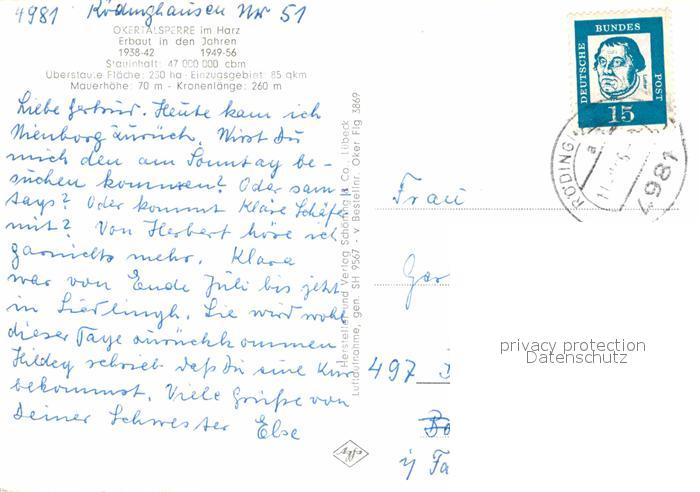 4981 Rödinghausen Nr 51
OKERTALSPERRE im Harz
Erbaut in den Jahren
1938-42 1949-56
Stauinhalt: 47 000 000 cbm
Überstaute Fläche: 230 ha - Einzugsgebiet: 85 qkm
Mauerhöhe: 70 m - Kronenlänge: 260 m
Liebe Gertrud. Heute kam ich
zurück. Wirst Du
mich den am Sonntag be-
suchen kommen? Oder sam
tags? Oder kommt Kläre Schäfe
mit? Von Herbert höre ich
garnichts mehr. Klara
war von Ende Juli bis jetzt
in. Sie wird wohl
dieser Tage zurückkommen
Hildeg schrieb daß Du eine Kur
bekommst. Viele Grüße von
Deiner Schwester Else
Hersteller und Verlag Schöning & Co., Lübeck
Luftaufnahme, gen. SH 9567 - v Bestellnr. Oker Flg 3869
Agfa
DEUTSCHE BUNDES POST
15
RÖDING
a
4981
Frau
Ger
497
Ba
privacy protection
Datenschutz